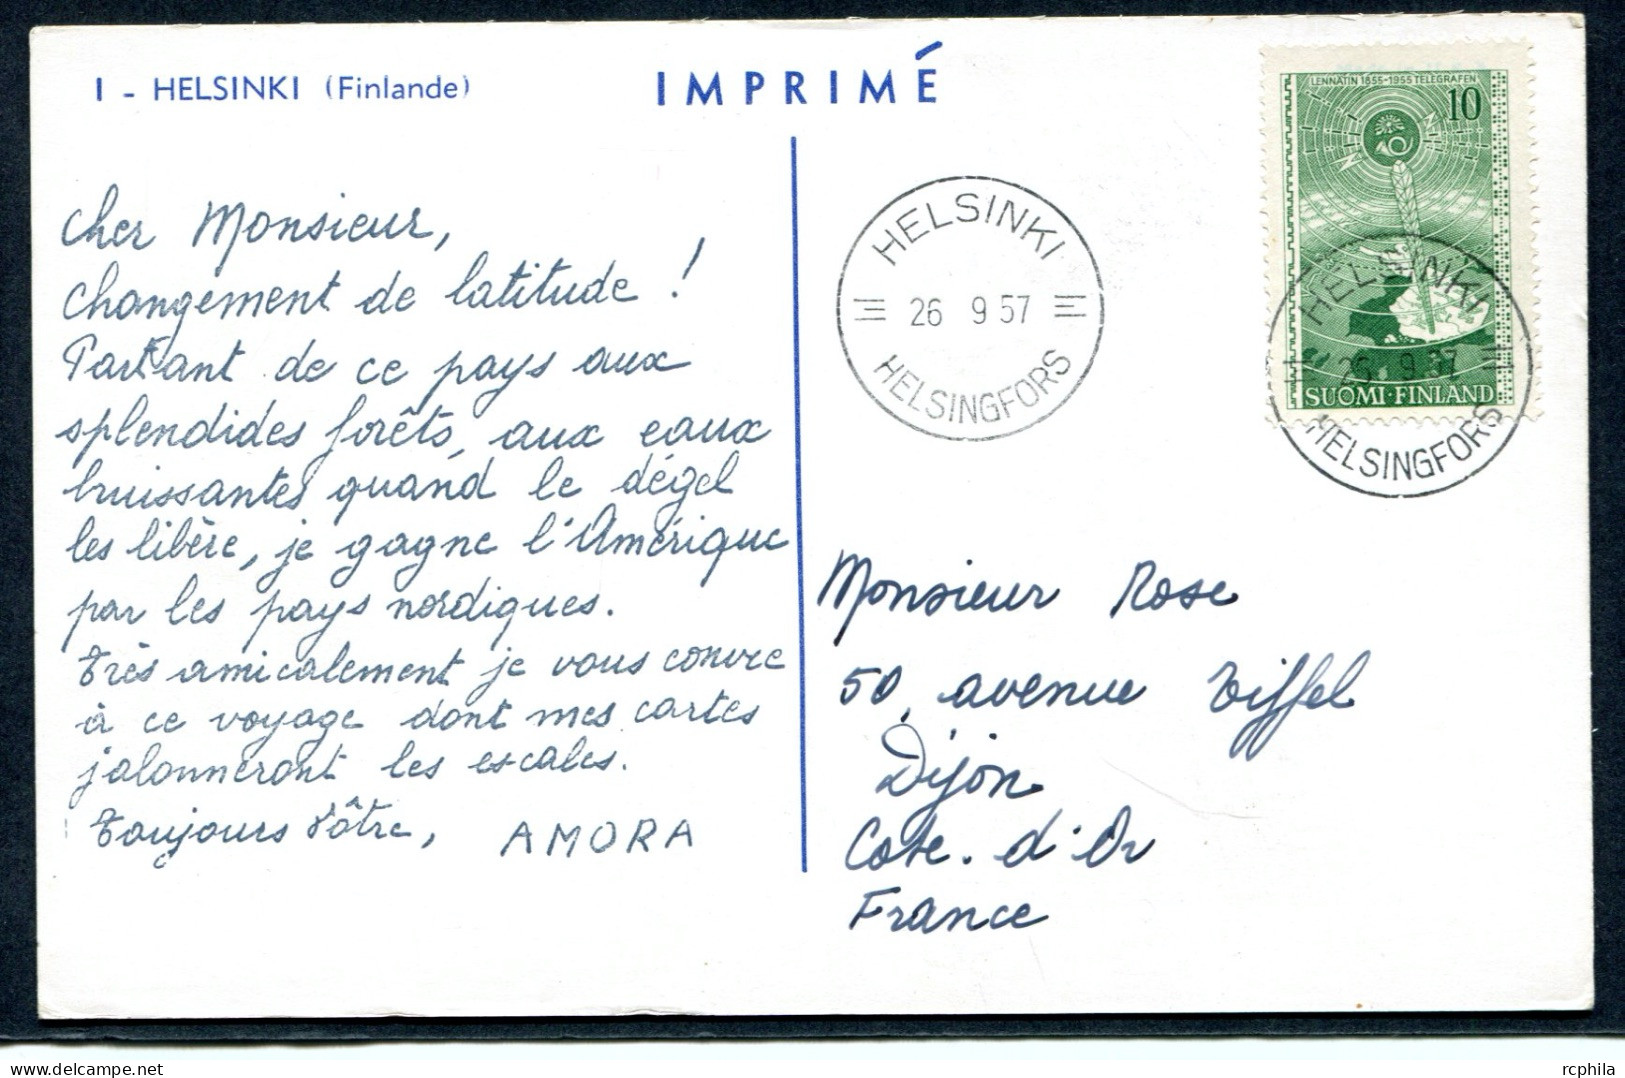 I - HELSINKI (Finlande)
IMPRIMÉ
Cher Monsieur,
changement de latitude !
Partant de ce pays aux
splendides forêts, aux eaux
bruissantes quand le dégel
les libère, je gagne l'Amérique
par les pays nordiques.
Très amicalement je vous convie
à ce voyage dont mes cartes
jalonneront les escales.
Toujours vôtre, AMORA
HELSINKI
26 9 57
HELSINGFORS
LENNÄTIN 1855-1955 TELEGRAFEN
10
SUOMI·FINLAND
HELSINKI
26 9 57
HELSINGFORS
Monsieur Rose
50, avenue Eiffel
Dijon
Cote. d'Or
France
rcphila